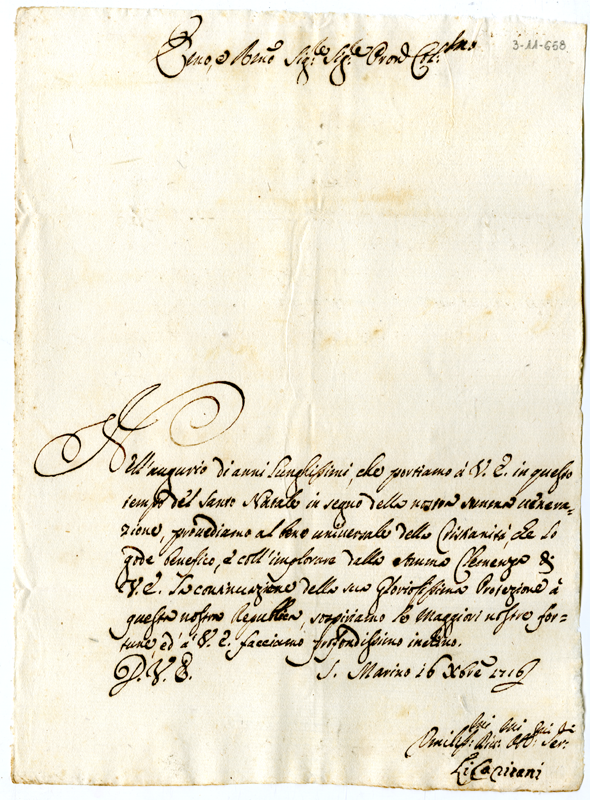 Em̃o, e Reṽo Sigʳᵉ Sigʳᵉ Pron̄ Col.ᵐᵒ
3-11-658
Nell'augurio di anni lunghissimi, che portiamo à V. E. in questo
tempo del Santo Natale in segno della nostra summa venera=
zione, provediamo al bene universale della Cristianità, che lo
gode benefico, e coll'implorare dalla somma Clemenza di
V. E. la continuazione della sua Gloriosissima Protezione à
questa nostra Republica, sospiriamo le Maggiori nostre for=
tune, ed' à V. E. facciamo profondissimo inchino.
D. V. E. S. Marino 16 Xbrē 1716
Umilis:ᵐⁱ Div:ᵐⁱ Obb:ᵐⁱ Ser:ʳⁱ
Li Capitani